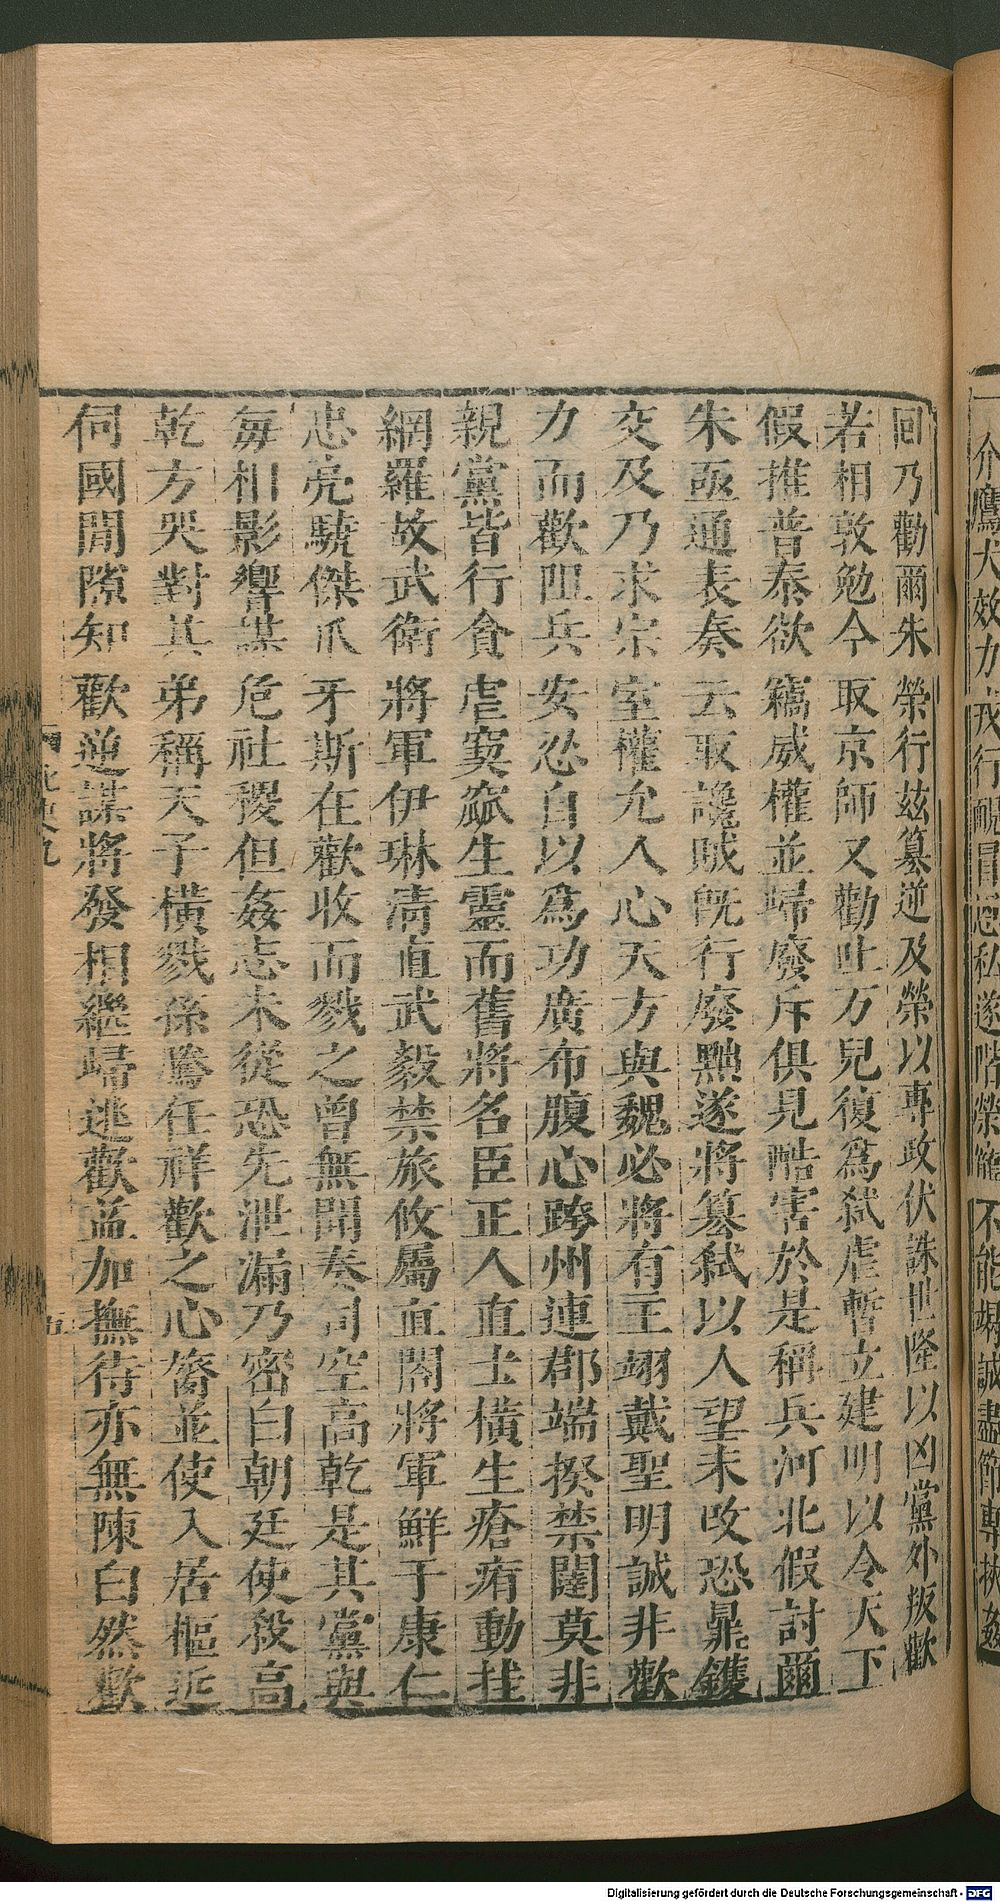 一介鷹犬效力戎行靦冒恩私遂階榮寵不能竭誠盡節專挾姦
回乃勸爾朱榮行玆篡逆及榮以專政伏誅世隆以凶黨外叛歡
若相敦勉令取京師又勸吐万兒復爲弑虐暫立建明以令天下
假推普泰欲竊威權並歸廢斥俱見酷害於是稱兵河北假討爾
朱亟通表奏云取讒賊旣行廢黜遂將篡弑以人望未改恐鼎鑊
交及乃求宗室權允人心天方與魏必將有主翊戴聖明誠非歡
力而歡阻兵安忍自以爲功廣布腹心跨州連郡端揆禁闥莫非
親黨皆行貪虐窫窳生靈而舊將名臣正人直士橫生瘡痏動挂
網羅故武衛將軍伊琳淸直武毅禁旅攸屬直閤將軍鮮于康仁
忠亮驍傑爪牙斯在歡收而戮之曾無聞奏司空高乾是其黨與
每相影響謀危社稷但姦志未從恐先泄漏乃密白朝廷使殺高
乾方哭對其弟稱天子橫戮孫騰任祥歡之心膂並使入居樞近
伺國間隙知歡逆謀將發相繼歸逃歡益加撫待亦無陳白然歡
北史九
五
Digitalisierung gefördert durch die Deutsche Forschungsgemeinschaft - DFG